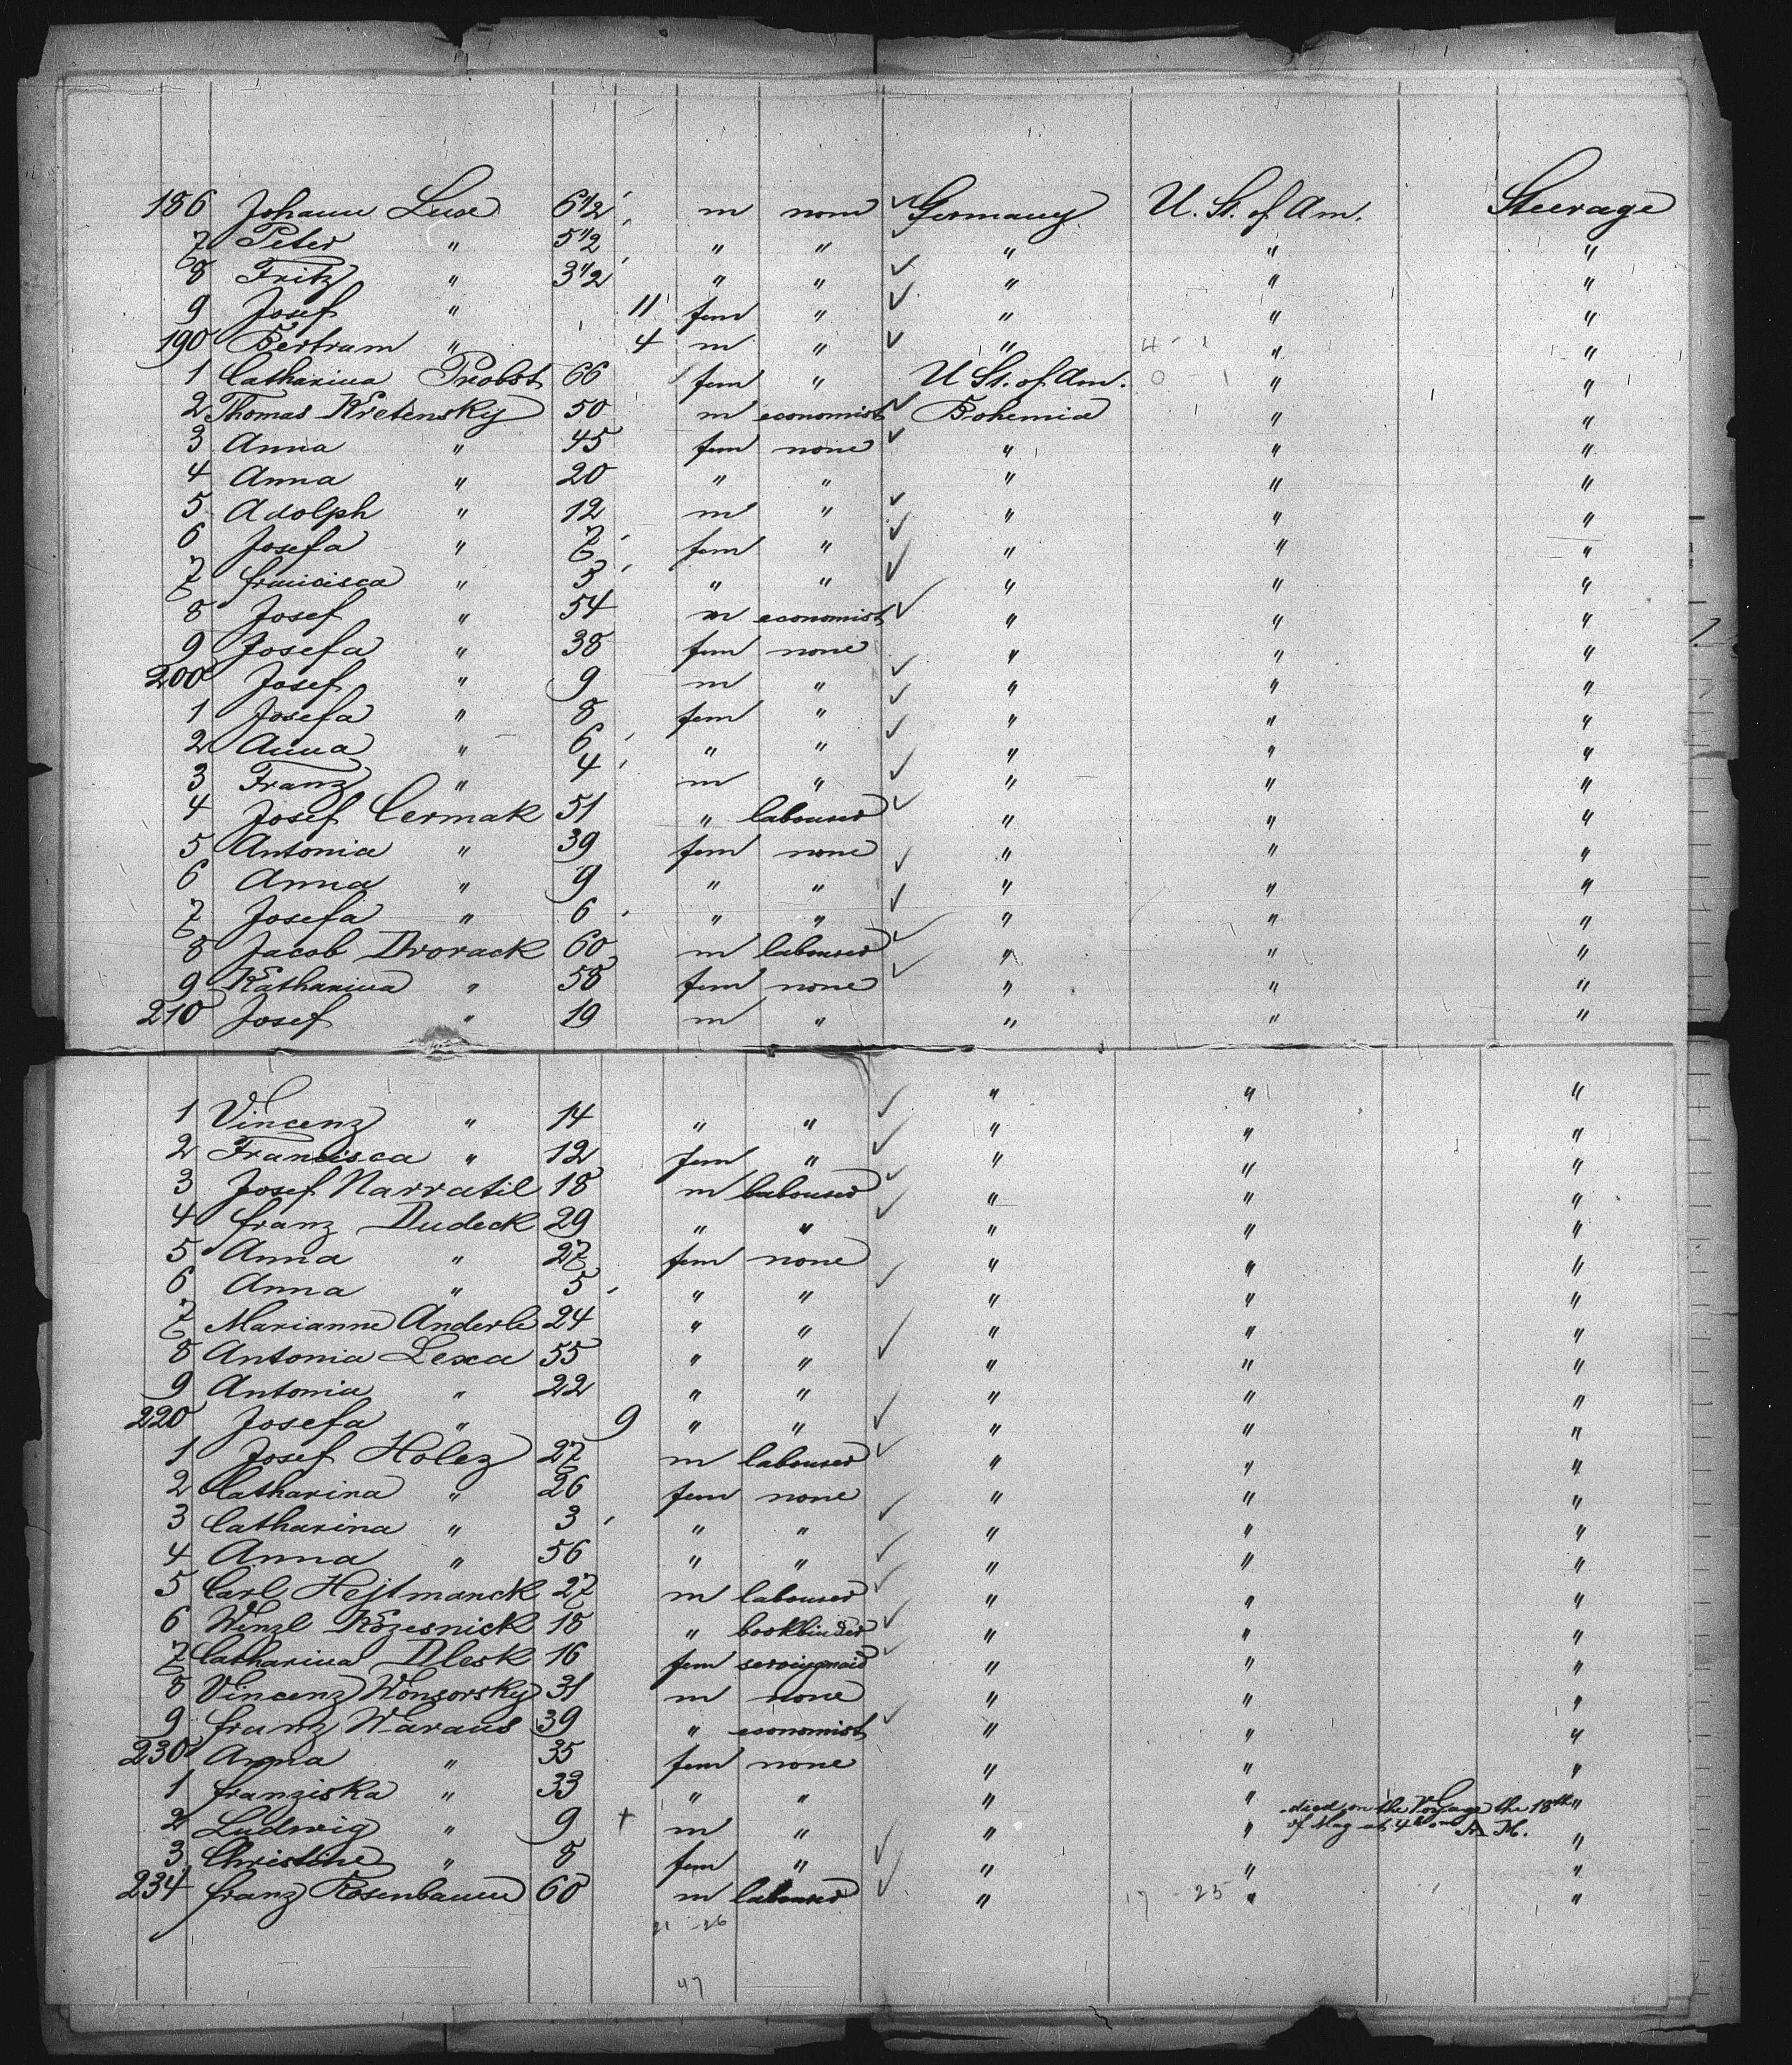 186 Johann Luse 6 1/2 m none ✓ Germany U. St. of Am. Steerage
7 Peter " 5 1/2 " " ✓ " " "
8 Fritz " 3 1/2 " " ✓ " " "
9 Josef " 11 fem " ✓ " " "
190 Bertram " 4 m " ✓ " 4 - 1 " "
1 Catharina Probst 66 fem " U St. of Am. 0 1 " "
2 Thomas Kretensky 50 m economist ✓ Bohemia " "
3 Anna " 45 fem none ✓ " " "
4 Anna " 20 " " " " "
5 Adolph " 12 m " ✓ " " "
6 Josefa " 7 fem " ✓ " " "
7 francisca " 5 " " ✓ " " "
8 Josef " 54 m economist ✓ " " "
9 Josefa " 38 fem none " " "
200 Josef " 9 m " ✓ " " "
1 Josefa " 8 fem " ✓ " " "
2 Anna " 6 " " ✓ " " "
3 Franz " 4 m " ✓ " " "
4 Josef Cermak 51 " labourer ✓ " " "
5 Antonia " 39 fem none " " "
6 Anna " 9 " " ✓ " " "
7 Josefa " 6 " " ✓ " " "
8 Jacob Dvorack 60 m labourer ✓ " " "
9 Katharina " 58 fem none ✓ " " "
210 Josef " 19 m " " " "
" " "
1 Vincenz " 14 " " ✓ " " "
2 Francisca " 12 fem " ✓ " " "
3 Josef Navratil 18 m labourer ✓ " " "
4 franz Dudeck 29 " " ✓ " " "
5 Anna " 27 fem none " " "
6 Anna " 5 " " ✓ " " "
7 Marianne Anderle 24 " " " " "
8 Antonia Lexa 55 " " ✓ " " "
9 Antonia " 22 " " " " "
220 Josefa " 9 " " ✓ " " "
1 Josef Holez 27 m labourer ✓ " " "
2 Catharina " 26 fem none " " "
3 Catharina " 3 " " ✓ " " "
4 Anna " 56 " " ✓ " " "
5 Carl Hejtmanck 27 m labourer ✓ " " "
6 Wenzl Kozesnick 18 " bookbinder ✓ " " "
7 Catharina Dlesk 16 fem ✓ " " "
8 Vincenz Wonsorsky 31 m none " " "
9 franz Waraus 39 " economist ✓ " " "
230 Anna " 35 fem none " " "
1 franziska " 33 " " " " "
2 Ludwig " 9 + m " " " died on the Voyage the 18th of May at 4 A. M. "
3 Christine " 8 fem " ✓ " " "
234 franz Rosenbaum 60 m labourer ✓ " 17 - 25 " "
21 - 26
47